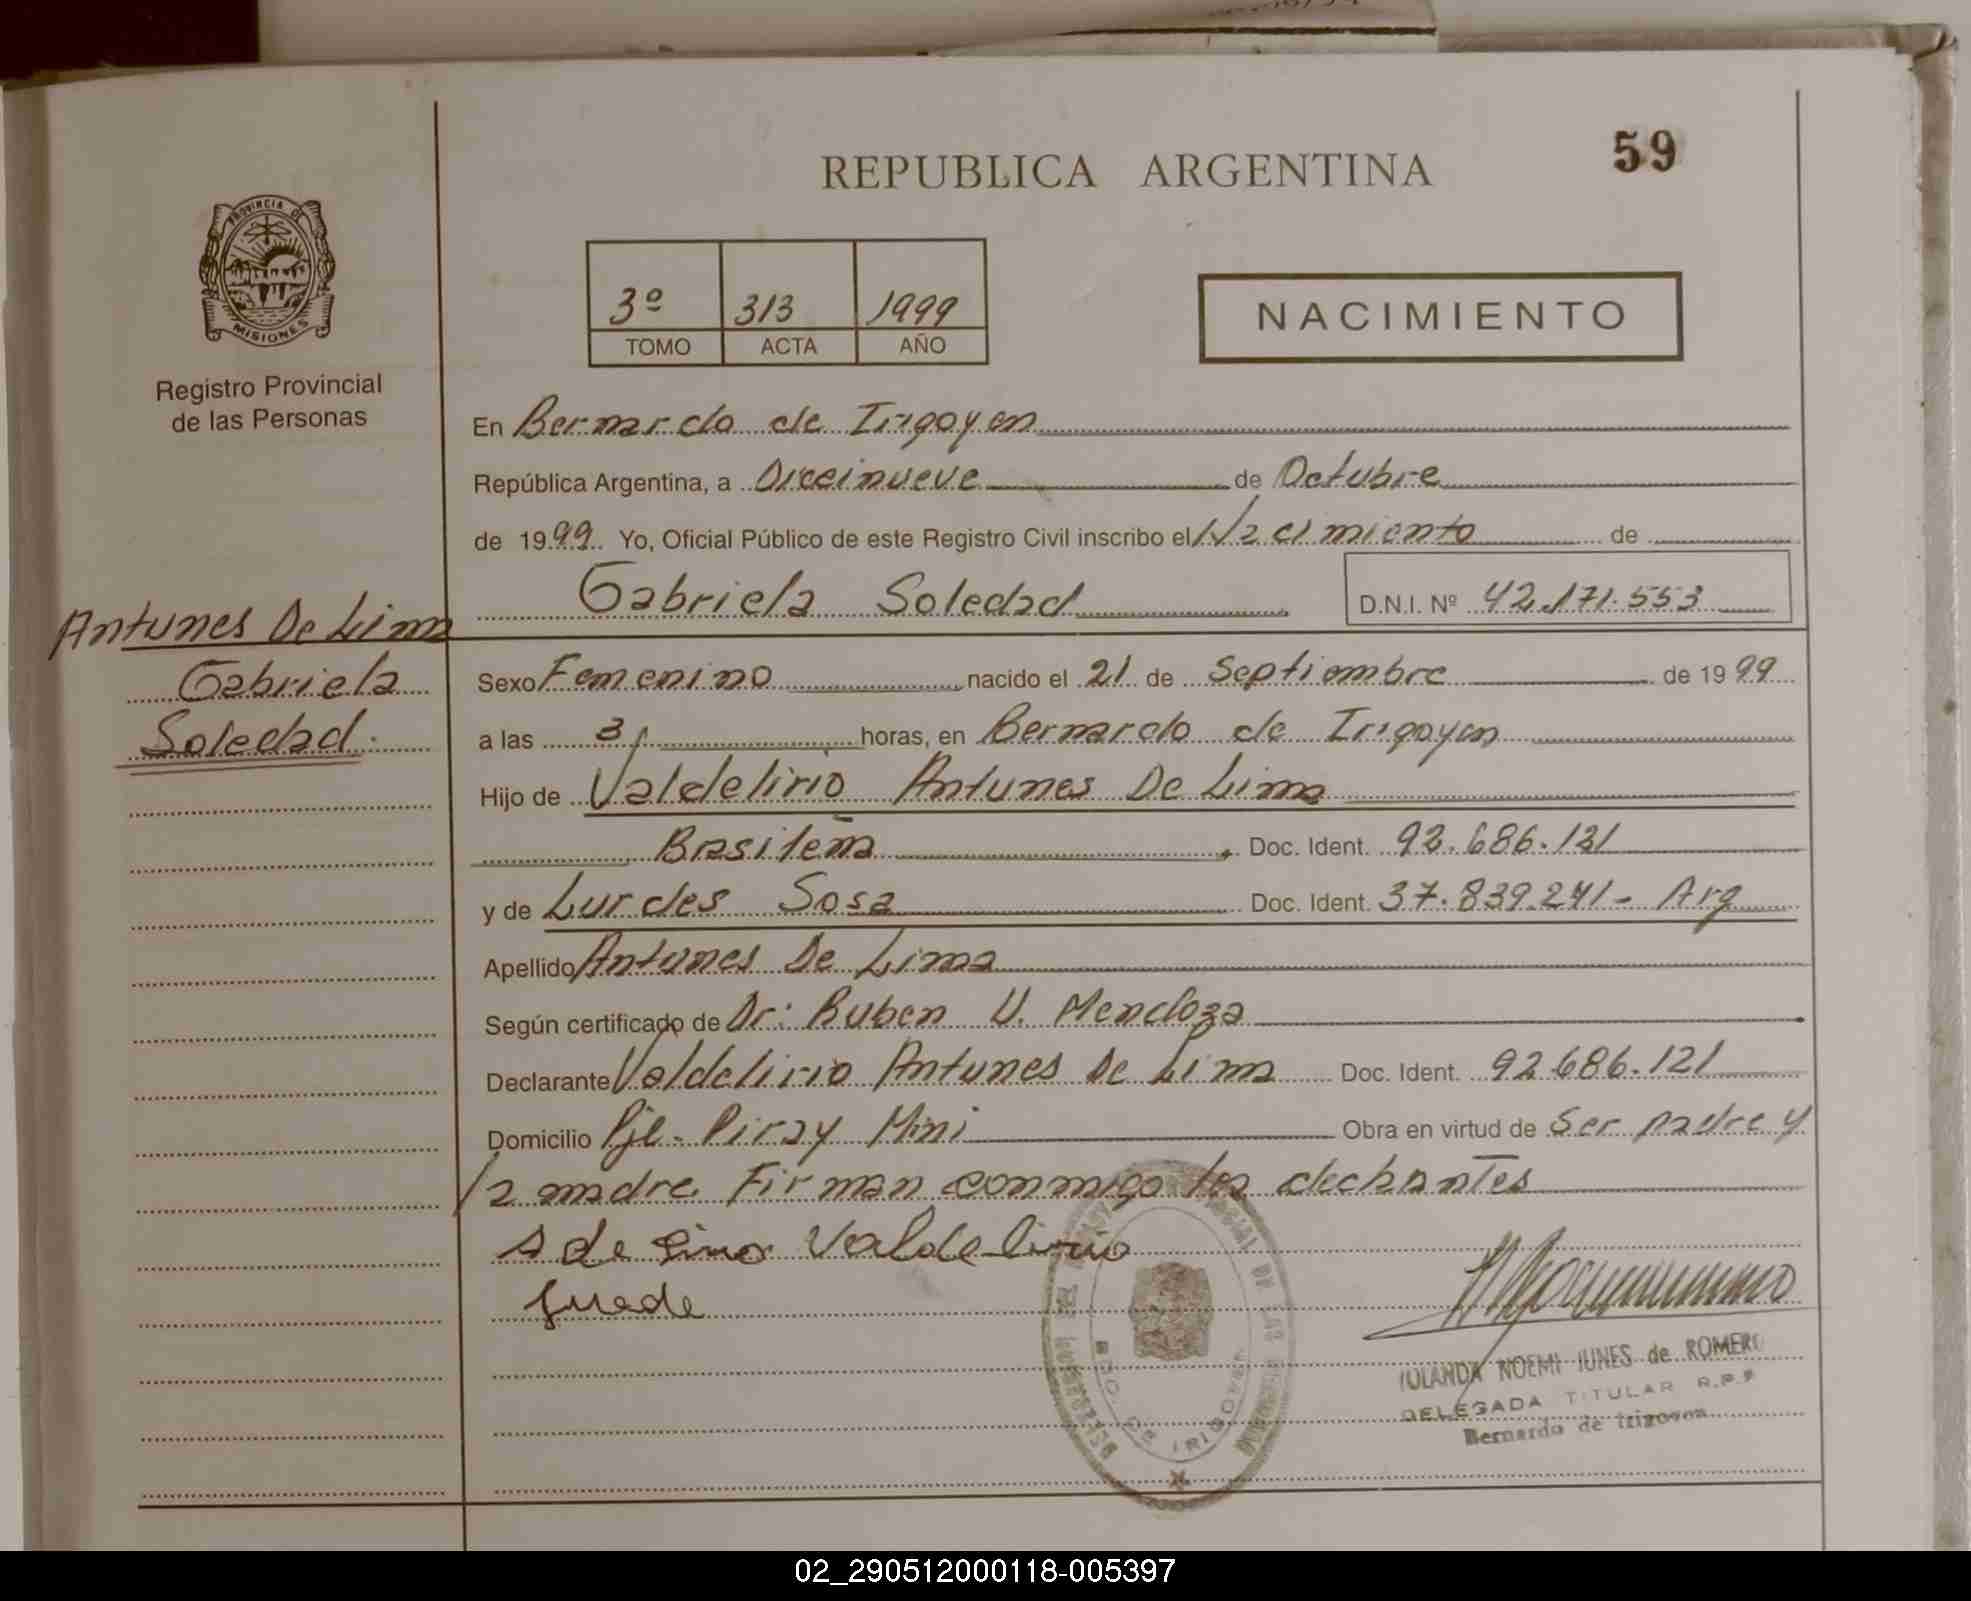 59
REPUBLICA ARGENTINA
PROVINCIA DE
MISIONES
Registro Provincial
de las Personas
3º 313 1999
TOMO ACTA AÑO
NACIMIENTO
En Bernardo de Irigoyen
República Argentina, a Diecinueve de Octubre
de 1999 Yo, Oficial Público de este Registro Civil inscribo el Nacimiento de
Gabriela Soledad D.N.I. Nº 42.171.553
Antunes De Lima
Gabriela
Soledad.
Sexo Femenino nacido el 21 de Septiembre de 1999
a las 3 horas, en Bernardo de Irigoyen
Hijo de Valdelirio Antunes De Lima
Brasileña Doc. Ident. 92.686.121
y de Lurdes Sosa Doc. Ident. 37.839.241- Arg
Apellido Antunes De Lima
Según certificado de Dr: Ruben V. Mendoza
Declarante Valdelirio Antunes De Lima Doc. Ident. 92.686.121
Domicilio Pje- Piray Mini Obra en virtud de Ser padre y
la madre Firman conmigo los declarantes
A de Lima Valdelirio
DE LAS
BDO. DE IRIGOYEN
IOLANDA NOEMI IUNES de ROMERO
DELEGADA TITULAR R.P.P
Bernardo de Irigoyen
02_290512000118-005397